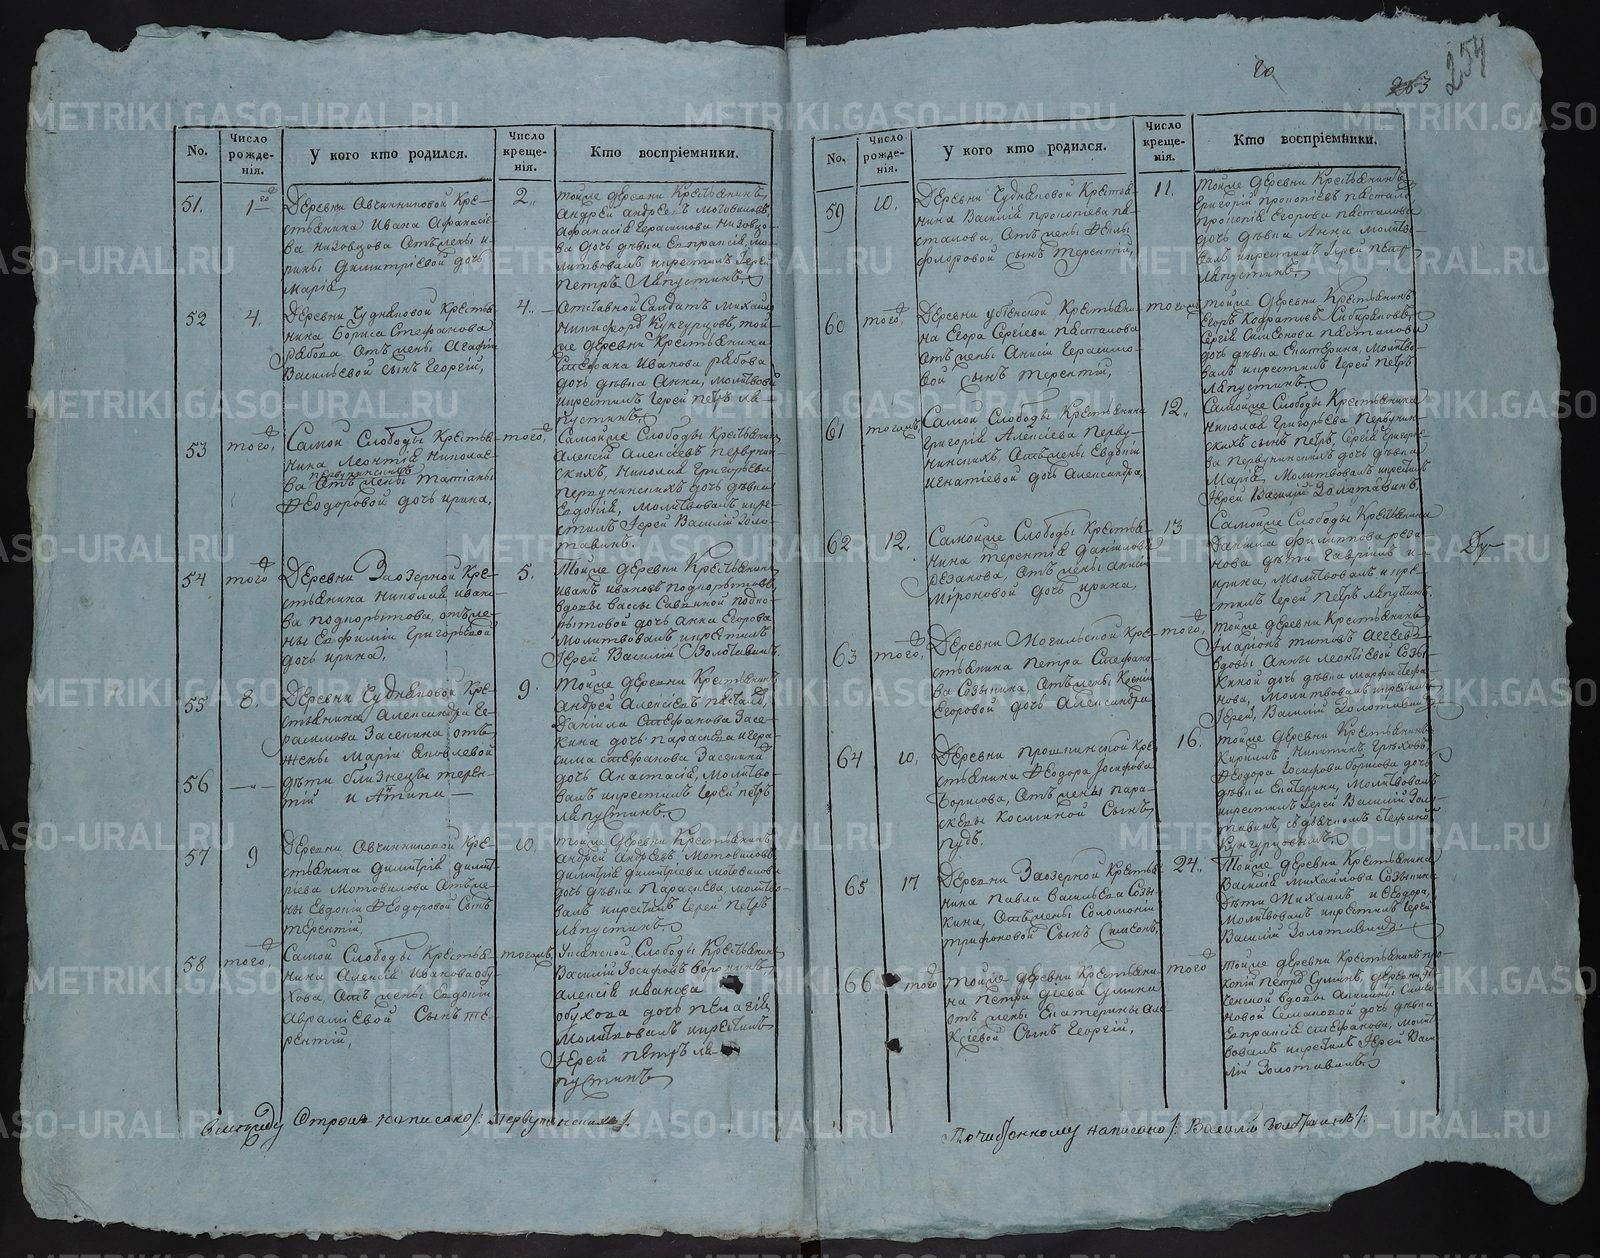 254
263
No.
Число рожде-нія.
У кого кто родился.
Число креще-нія.
Кто воспріемники.
51.
1
Деревни Овчинниковой Кре-
стьянина Ивана Афанасіе-
ва Низовцова отъ жены и-
рины Димитріевой дочь
Марія,
2.
тойже деревни Крестьянинъ
Андрей Андреевъ Мотовиловъ,
Афанасія Герасимова Низовцо-
ва дочь девка Евпраксія, мо-
литвовалъ икрестилъ Іерей
Петръ Лапустинъ.
52
4.
Деревни Чудиновой Крестья-
нина Бориса Стефанова
Рябова отъ жены Агафіи
Васильевой сынъ Георгій,
4.
Отставной Салдатъ Михаил
Никифоръ Кунгурцовъ, той-
же деревни Крестьянина
Стефана Иванова Рябова
дочь девка Анна, молитвовал
икрестилъ Іерей Петръ Ла-
пустинъ.
53
того,
Самой Слободы Крестья-
нина Леонтія Николае-
ва Первунинскихъ отъ жены Татіаны
Ѳеодоровой дочь Ирина,
того,
Самойже Слободы Крестьянин
Алексій Алексеевъ Первунин-
скихъ, Николая Григорьева
Первунинскихъ дочь девка
Евдокія, молитвовалъ икре-
стилъ Іерей Василій Золо-
тавинъ.
54
того
Деревни Заозерной Кре-
стьянина Николая Ивано-
ва Подкорытова, отъ же-
ны Евфиміи Григорьевой
дочь Ирина,
5.
Тойже деревни Крестьянин
Иванъ Ивановъ Подкорытовъ,
вдовы Васы Савиной Подко-
рытовой дочь Анна Егорова
Молитвовалъ икрестилъ
Іерей Василій Золотавинъ.
55
8.
Деревни Чудиновой Кре-
стьянина Александра Ге-
расимова Засекина отъ
жены Маріи Яковлевой
56
дети близнецы терен-
тій и Антипа
9.
Тойже деревни Крестьянинъ
Андрей Алексеевъ Пасталов,
Даніила Стефанова Засе-
кина дочь Параскева и Гера-
сима Стефанова Засекина
дочь Анастасія, Молитво-
валъ икрестилъ Іерей Петръ
Лапустинъ.
57
9
Деревни Овчинниковой Кре-
стьянина Димитрія Димит-
ріева Мотовилова отъ же-
ны Евдокіи Ѳеодоровой Сынъ
Терентій,
10.
тойже деревни Крестьянинъ
Андрей Андреевъ Мотовиловъ
Димитрія Димитріева Мотовилова
дочь девка Параскева, молитво-
валъ икрестилъ Іерей Петръ
Лапустинъ.
58
того,
Самой Слободы Крестья-
нина Алексія Иванова обу-
хова, отъ жены Евдокіи
Авраміевой Сынъ Те-
рентій,
тогожъ
Слободы Крестьянин
Василій Іосифовъ Воронинъ
Алексія Иванова
обухова дочь Пелагія
Молитвовалъ икрестилъ
Іерей Петръ Ла-
пустинъ
написано /: Первунинскихъ :/
No.
Число рожде-нія.
У кого кто родился.
Число креще-нія.
Кто воспріемники.
59
10.
Деревни Чудиновой Крестья-
нина Василія Прокопіева Па-
сталова, отъ жены Ѳеклы
Флоровой сынъ Терентій,
11.
тойже деревни Крестьянинъ
Григорій Прокопіевъ Пастало
Прокопія Егорова Пасталова
дочь девка Анна молитво-
валъ икрестилъ Іерей Петръ
Лапустинъ.
60
того,
Деревни Крестьяни-
на Егора Сергіева Пасталова
отъ жены Анисіи Герасимо-
вой Сынъ Терентій,
тогожъ
тойже Деревни Крестьянинъ
Егоръ Кодратовъ Сибиряковъ,
Сергія Симеонова Пасталова
дочь девка Екатерина, Молитво-
валъ икрестилъ Іерей Петръ
Лапустинъ.
61
тогожъ
Самой Слободы Крестьянина
Григорія Алексіева Перву-
нинскихъ отъ жены Евдокіи
Игнатіевой дочь Александра,
12.
Самойже Слободы Крестьянина
Николая Григорьева Первунин-
скихъ сынъ Петръ, Сергія Григорье-
ва Первунинскихъ дочь девка
Марія, Молитвовалъ икрестилъ
Іерей Василій Золотавинъ,
62
12.
Самойже Слободы Крестья-
нина Терентія Даніилова
Резанова, отъ жены Анны
Мироновой дочь Ирина,
13
Самойже Слободы Крестьянина
Даніила Филиппова Реза-
нова дети Гавріилъ и
Ирина, Молитвовалъ и кре-
стилъ Іерей Петръ Лапустин.
63
того,
Деревни Могильской Кре-
стьянина Петра Стефано-
ва Созыкина, отъ жены Ксеніи
Егоровой дочь Александра
того,
тойже деревни Крестьянинъ
Иларіонъ Титовъ Агеевъ
вдовы Анны Леонтіевой Созы-
киной дочь девка Марфа Стефа-
нова, Молитвовалъ икрестилъ
Іерей, Василій Золотавинъ
64
10,
Деревни Крестьянина Ѳеодора Іосифова
Борисова, отъ жены Пара-
скевы Косминой Сынъ
Пудъ.
16.
тойже деревни Крестьянинъ
Кириллъ Никитинъ
Ѳеодора Іосифова Борисова дочь
девка Екатерина, Молитвовалъ
икрестилъ Іерей Василій Золо-
тавинъ, съ дьячкомъ Стефано
Кунгурцовымъ.
65
17
Деревни Заозерной Крестья-
нина Павла Васильева Созы-
кина, отъ жены Соломоніи
Трифоновой Сынъ Симеонъ,
24.
Тойже деревни Крестьянина
Василія Михайлова Созыкина
Дети Михаилъ и Ѳеодора,
Молитвовалъ икрестилъ Іерей
Василій Золотавинъ.
66
того
тойже деревни Крестьяни-
на Петра Гіева Сумина
отъ жены Екатерины Але-
ксіевой Сынъ Георгій,
того
тойже деревни Крестьянинъ Про-
копій Петровъ Суминъ, деревни
вдовы Акилины Симео-
новой дочь девка
Евпраксія Стефанова, Молит-
вовалъ икрестилъ Іерей Васи-
лій Золотавинъ.
написано /: Василій Золотавинъ :/